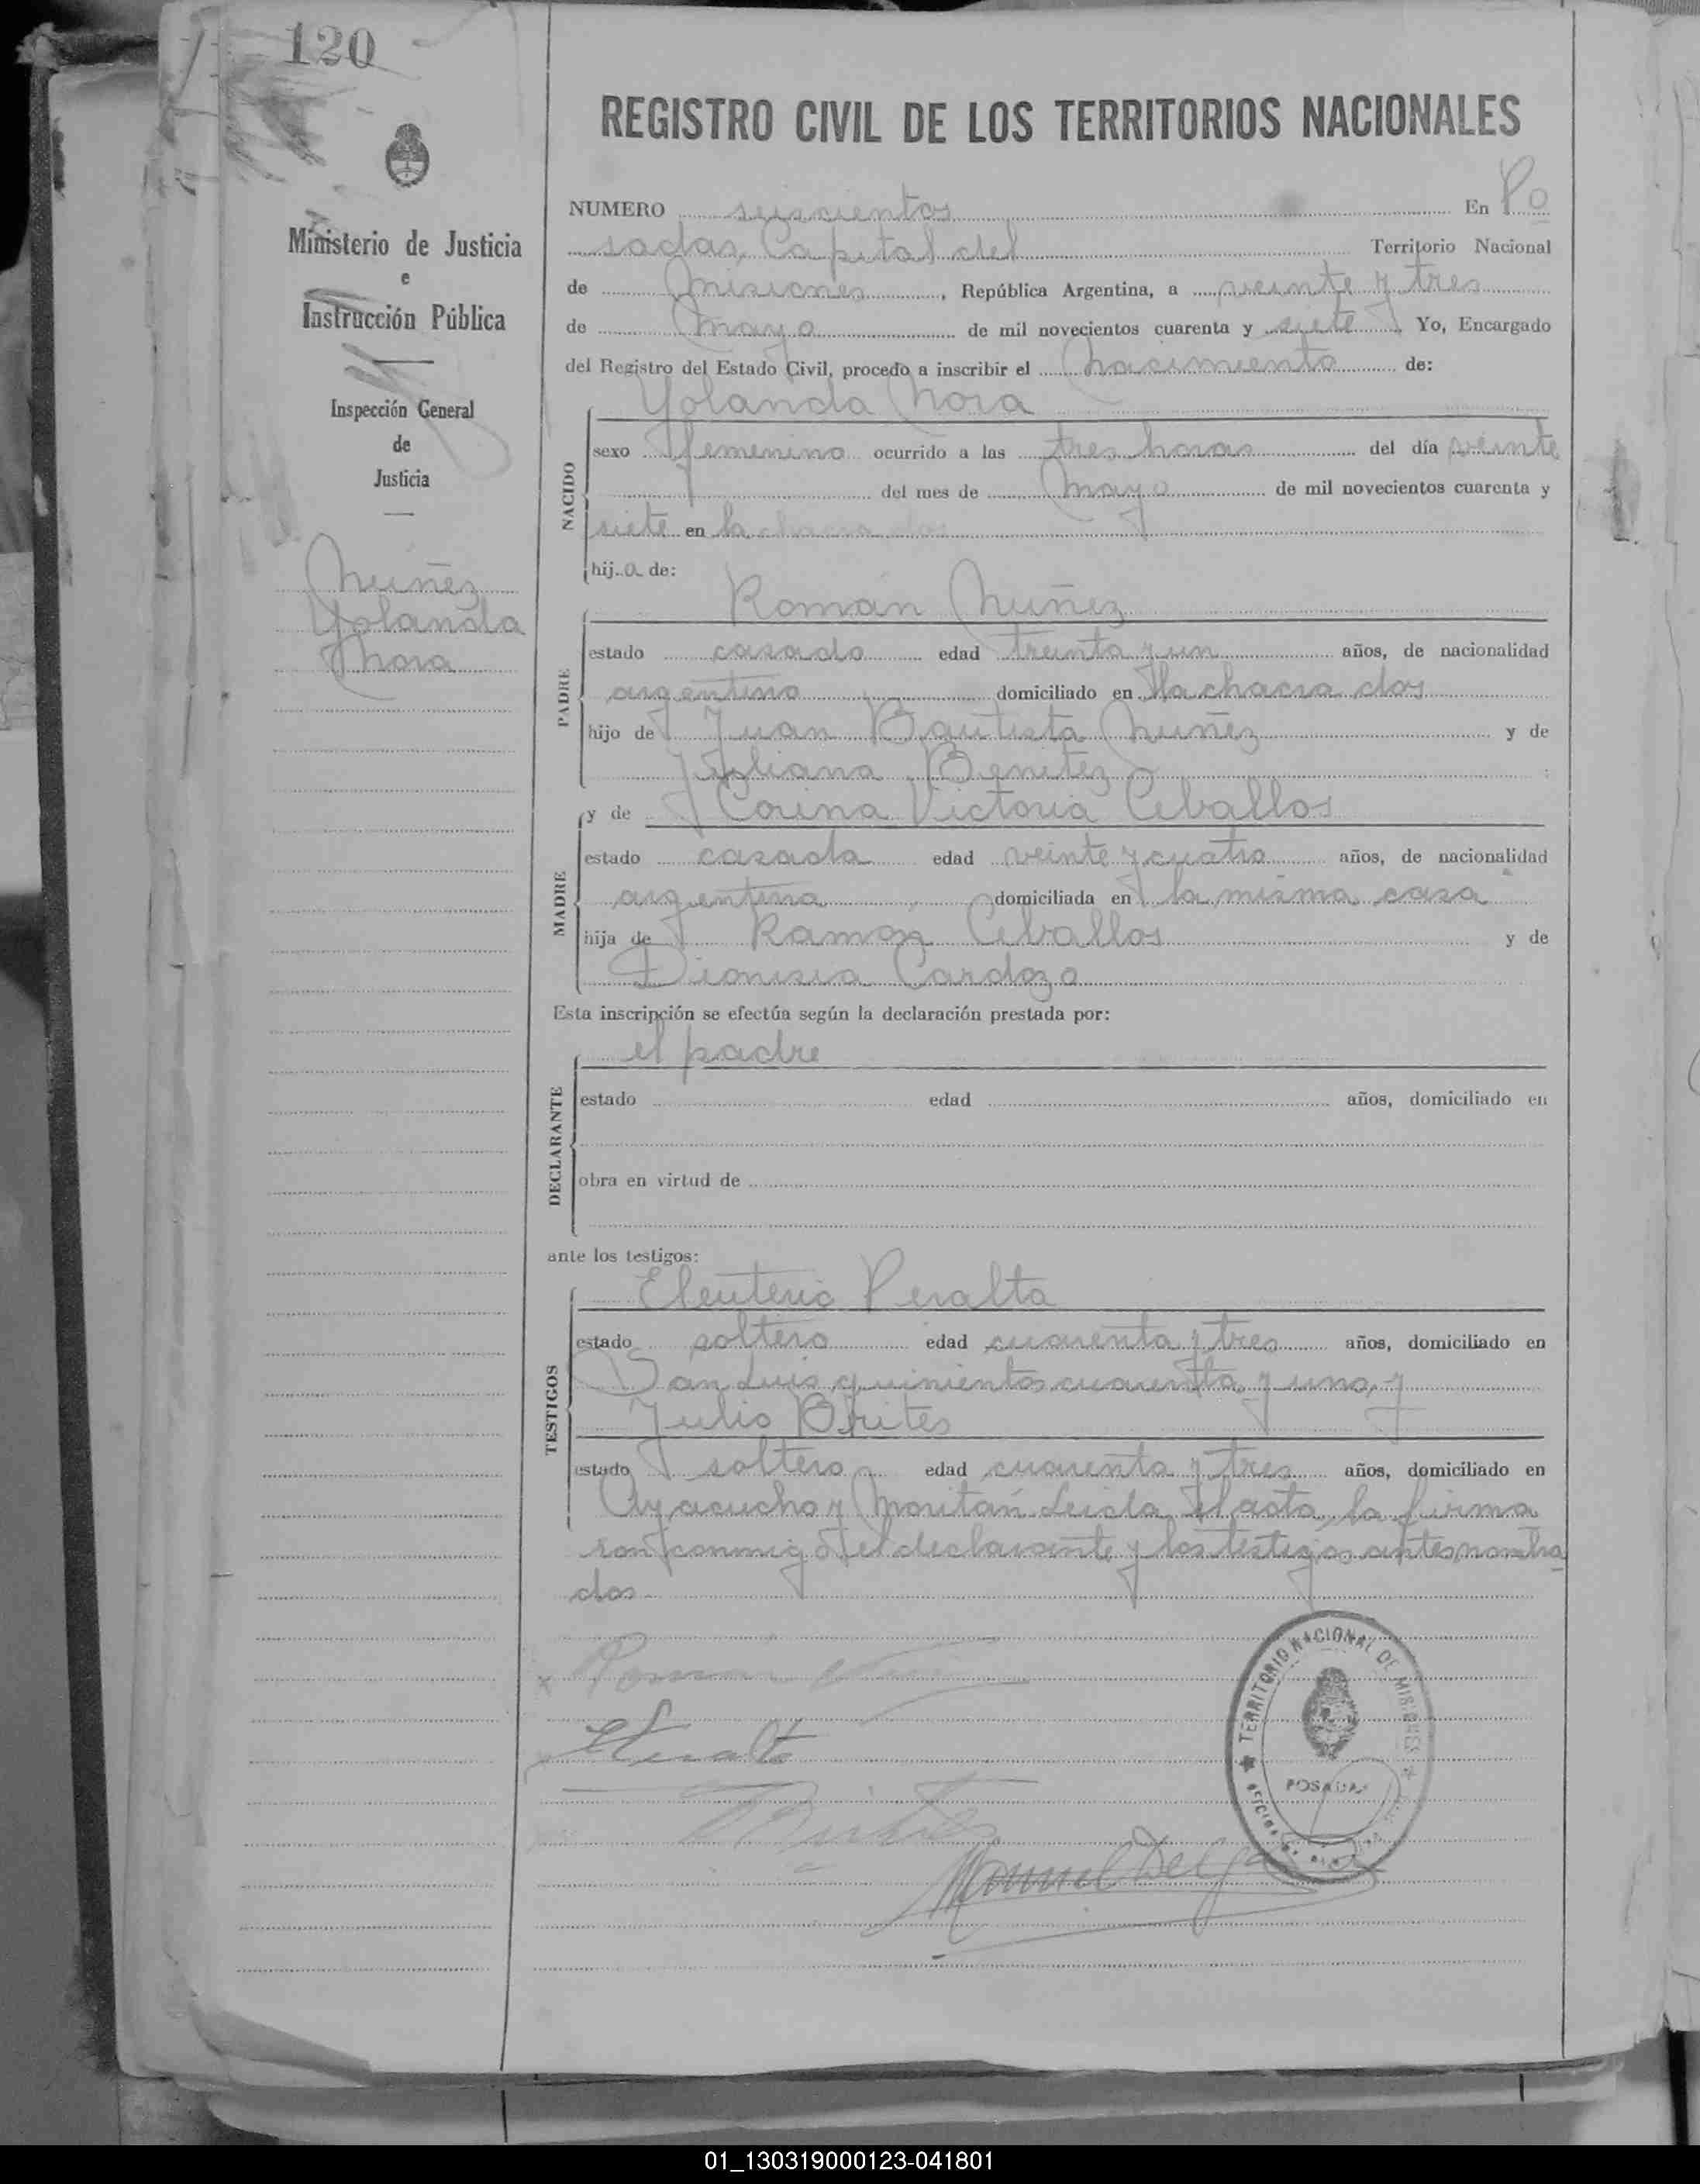 120
REGISTRO CIVIL DE LOS TERRITORIOS NACIONALES
Ministerio de Justicia
e
Instrucción Pública
Inspección General
de
Justicia
Nuñez
Yolanda
Nora
NUMERO seiscientos En Po
sadas, Capital del Territorio Nacional
de Misiones, República Argentina, a veinte y tres
de Mayo de mil novecientos cuarenta y siete Yo, Encargado
del Registro del Estado Civil, procedo a inscribir el Nacimiento de:
Yolanda Nora
NACIDO
sexo femenino ocurrido a las tres horas del día veinte
del mes de Mayo de mil novecientos cuarenta y
siete en la chacra dos
hij a de:
Román Nuñez
PADRE
estado casado edad treinta y un años, de nacionalidad
argentino domiciliado en la chacra dos
hijo de Juan Bautista Nuñez y de
Juliana Benitez
MADRE
y de Corina Victoria Ceballos
estado casada edad veinte y cuatro años, de nacionalidad
argentina domiciliada en la misma casa
hija de Ramon Ceballos y de
Dionisia Cardozo
Esta inscripción se efectúa según la declaración prestada por:
el padre
DECLARANTE
estado edad años, domiciliado en
obra en virtud de
ante los testigos:
Eleuterio Peralta
TESTIGOS
estado soltero edad cuarenta y tres años, domiciliado en
San Luis quinientos cuarenta y uno, y
Julio Brites
estado soltero edad cuarenta y tres años, domiciliado en
Ayacucho y Moritán Leida el acta, la firma
ron conmigo el declarante y los testigos antes nombra
dos
TERRITORIO NACIONAL DE MISIONES
POSADAS
Manuel Delg
01_130319000123-041801